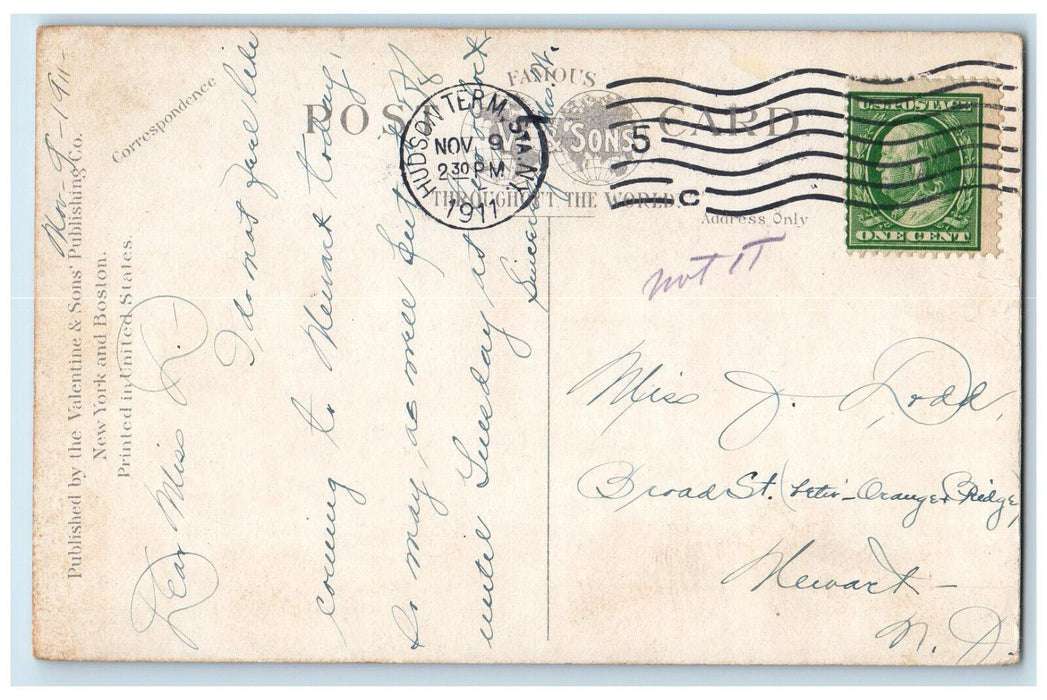 Published by the Valentine & Sons' Publishing Co.
New York and Boston.
Printed in United States.
Correspondence
FAMOUS
POST CARD
& SONS
THROUGHOUT THE WORLD.
Address Only
HUDSON TERM. STA. N.Y.
NOV 9
2 30 PM
1911
5
C
U.S. POSTAGE
ONE CENT
not IT
Nov-9-1911-
Dear Miss D.-
I do not feel like
coming to Newark today!
So may as well put
until Tuesday
Miss J. Dodd,
Broad St. (betw- Orange & Bridge)
Newark-
N. J.